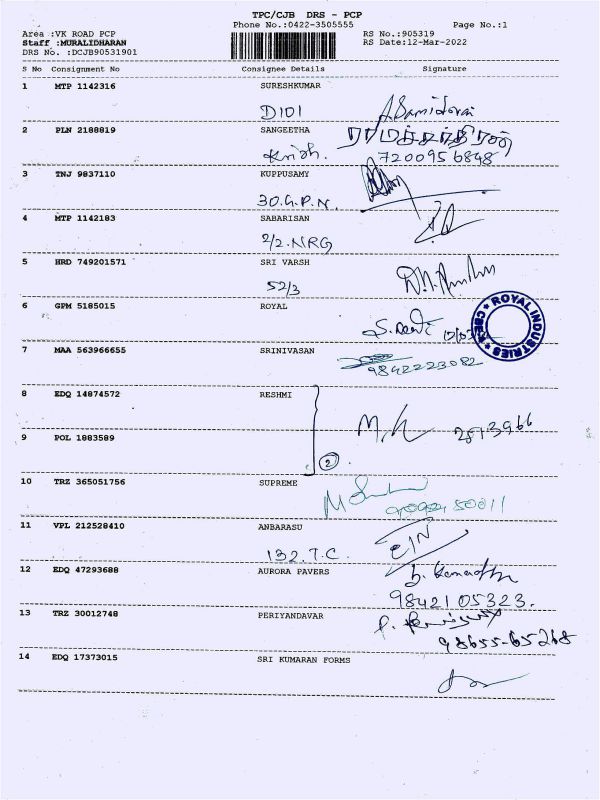 TPC/CJB DRS - PCP
Phone No.:0422-3505555 Page No.:1
Area :VK ROAD PCP RS No.:905319
Staff :MURALIDHARAN RS Date:12-Mar-2022
DRS No. :DCJB90531901
S No Consignment No Consignee Details Signature
1 MTP 1142316 SURESHKUMAR
D101
2 PLN 2188819 SANGEETHA ராமச்சந்திரன்
7200956848
3 TNJ 9837110 KUPPUSAMY
30.G.P.N.
4 MTP 1142183 SABARISAN
2/2.NRG
5 HRD 749201571 SRI VARSH
52/3
6 GPM 5185015 ROYAL
S. Devi
ROYAL INDUSTRIES
7 MAA 563966655 SRINIVASAN
9842223082
8 EDQ 14874572 RESHMI
2813966
9 POL 1883589
2
10 TRZ 365051756 SUPREME
11 VPL 212528410 ANBARASU
132.T.C.
12 EDQ 47293688 AURORA PAVERS
9842105323.
13 TRZ 30012748 PERIYANDAVAR
98655-65268
14 EDQ 17373015 SRI KUMARAN FORMS